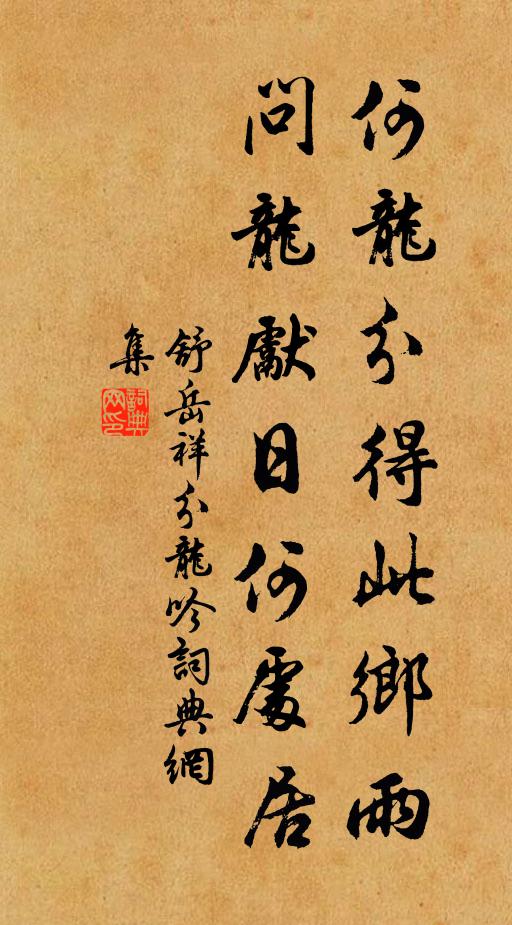 何龍分得此鄉雨
問龍獻日何處居
舒岳祥分龍吟詞典網
集
詞典
网印